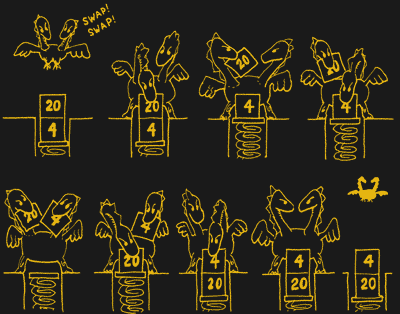 SWAP!
SWAP!
20
4
20
4
20
4
20
4
20
4
20
4
4
20
4
20
4
20